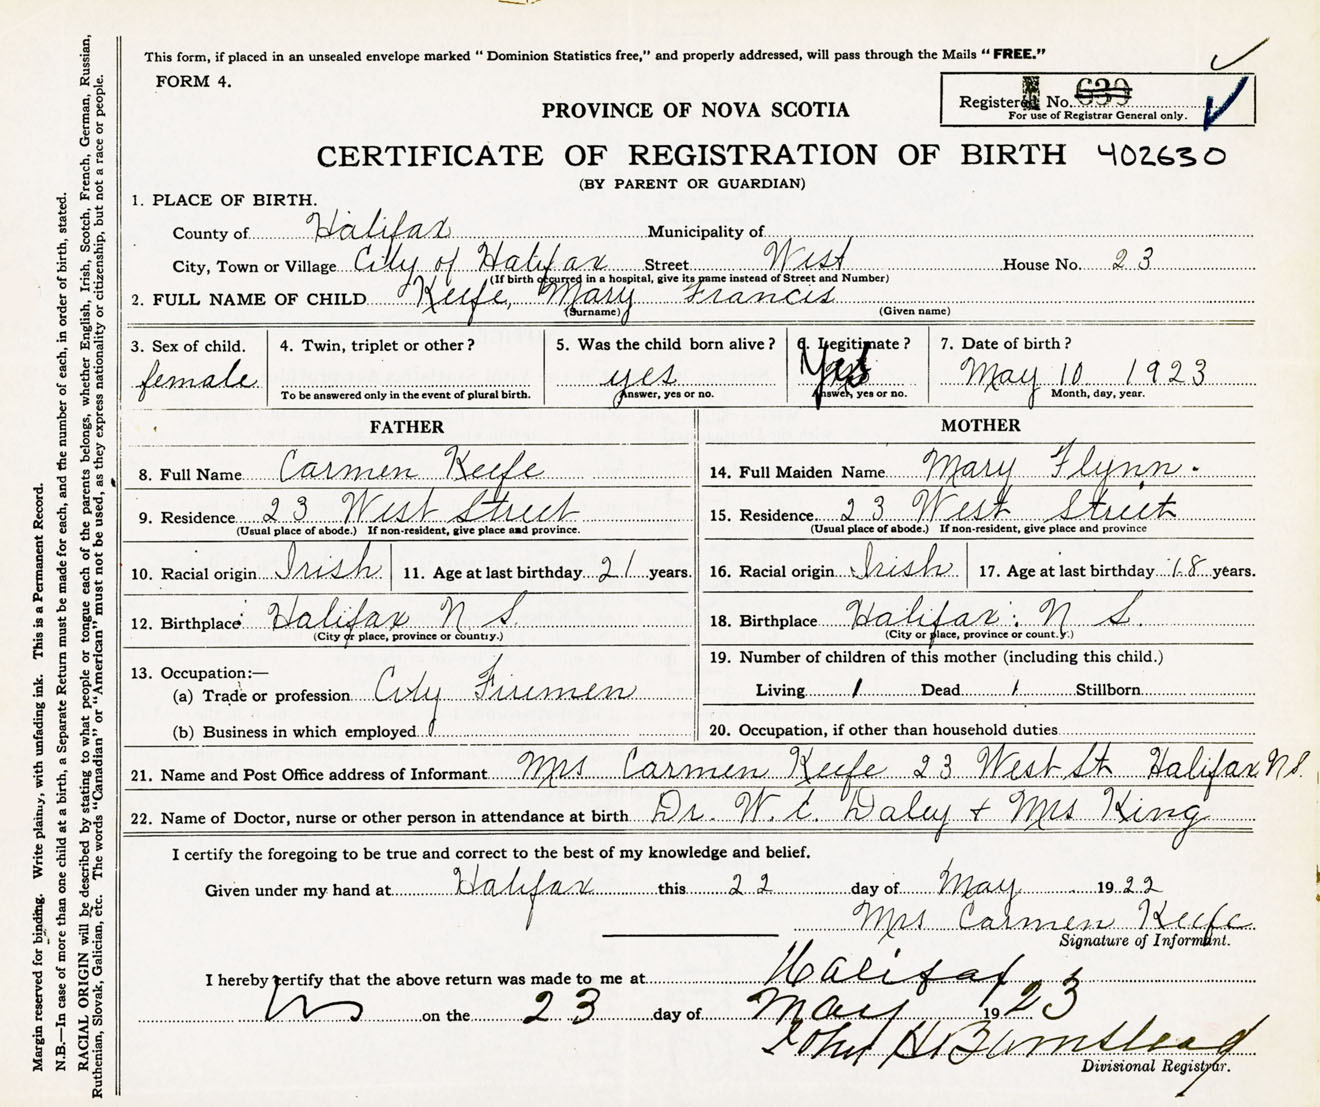 This form, if placed in an unsealed envelope marked "Dominion Statistics free," and properly addressed, will pass through the Mails "FREE."
FORM 4.
Registered No. 630
For use of Registrar General only.
PROVINCE OF NOVA SCOTIA
CERTIFICATE OF REGISTRATION OF BIRTH 402630
(BY PARENT OR GUARDIAN)
1. PLACE OF BIRTH.
County of Halifax Municipality of
City, Town or Village City of Halifax Street West House No. 23
(If birth occurred in a hospital, give its name instead of Street and Number)
2. FULL NAME OF CHILD Keefe, Mary Francis
(Surname) (Given name)
3. Sex of child. 4. Twin, triplet or other? 5. Was the child born alive? 6. Legitimate? 7. Date of birth?
female yes Yes May 10 1923
To be answered only in the event of plural birth. Answer, yes or no. Answer, yes or no. Month, day, year.
FATHER
8. Full Name Carmen Keefe
9. Residence 23 West Street
(Usual place of abode.) If non-resident, give place and province.
10. Racial origin Irish 11. Age at last birthday 21 years.
12. Birthplace Halifax N S.
(City or place, province or country.)
13. Occupation:—
(a) Trade or profession City Firemen
(b) Business in which employed
MOTHER
14. Full Maiden Name Mary Flynn.
15. Residence 23 West Street
(Usual place of abode.) If non-resident, give place and province
16. Racial origin Irish 17. Age at last birthday 18 years.
18. Birthplace Halifax. N S.
(City or place, province or count.y.)
19. Number of children of this mother (including this child.)
Living 1 Dead 1 Stillborn
20. Occupation, if other than household duties
21. Name and Post Office address of Informant Mrs Carmen Keefe 23 West St Halifax N S.
22. Name of Doctor, nurse or other person in attendance at birth Dr. W. C. Daley + Mrs King
I certify the foregoing to be true and correct to the best of my knowledge and belief.
Given under my hand at Halifax this 22 day of May 1922
Mrs Carmen Keefe
Signature of Informant.
I hereby certify that the above return was made to me at Halifax
on the 23 day of May 1923
John H. Bumstead
Divisional Registrar.
Margin reserved for binding. Write plainly, with unfading ink. This is a Permanent Record.
N.B.—In case of more than one child at a birth, a Separate Return must be made for each, and the number of each, in order of birth, stated.
RACIAL ORIGIN will be described by stating to what people or tongue each of the parents belongs, whether English, Irish, Scotch, French, German, Russian,
Ruthenian, Slovak, Galician, etc. The words "Canadian" or "American" must not be used, as they express nationality or citizenship, but not a race or people.